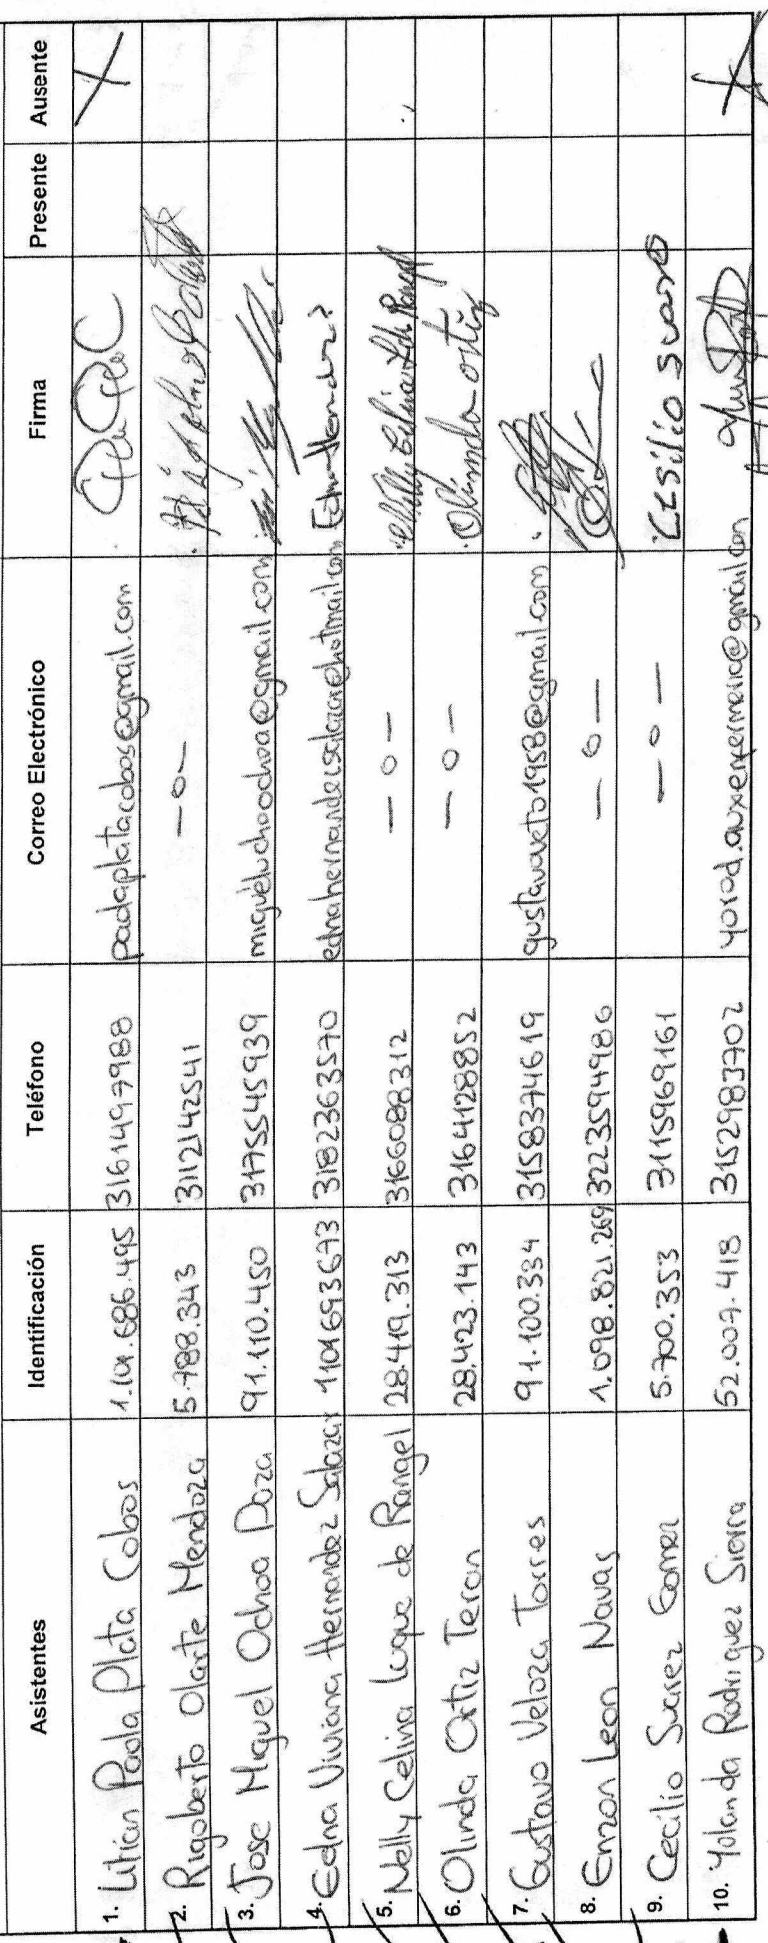 Asistentes Identificación Teléfono Correo Electrónico Firma Presente Ausente
1. Lilian Paola Plata Cobos 1.101.686.495 3161497988 padaplatacobos@gmail.com X
2. Rigoberto Olarte Mendoza 5.788.343 3112142541 —o—
3. Jose Miguel Ochoa Daza 91.110.450 3175545939 migueluchoochoa@gmail.com
4. Edna Viviana Hernandez Salazar 1101693673 3182363570 ednahernandezsalazar@hotmail.com Edna Hernandez
5. Nelly Celina Luque de Rangel 28.419.313 3166088312 —o—
6. Olinda Ortiz Teran 28.423.143 3164128852 —o— Olinda ortiz
7. Gustavo Veloza Torres 91.100.334 3158374619 gustavoveto1958@gmail.com
8. Emzon Leon Navas 1.098.821.269 3223594986 —o—
9. Cecilio Suarez Gomez 5.700.353 3115969161 —o— Cesilio suareo
10. Yolanda Rodriguez Sierra 52.007.418 3152983702 yorod.auxenfermeria@gmail.con X